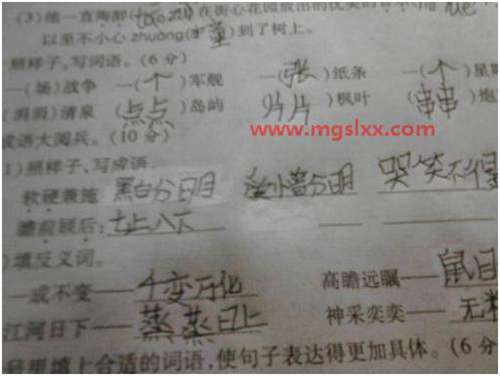 (3)他一直陶醉(táo zuì)在街心花园放出的优美的音乐
以至不小心zhuàng(撞)到了树上。
照样子,写词语。(6分)
一(场)战争 一(个)军舰 一(张)纸条 一(个)星期
(涓涓)清泉 (点点)岛屿 (片片)枫叶 (串串)炮
成语大阅兵。(10分)
www.mgslxx.com
1)照样子,写成语。
软硬兼施 黑白分明 分明 哭笑不得
瞻前顾后: 七上八下
)填反义词。
一成不变——千变万化 高瞻远瞩——鼠目
江河日下——蒸蒸日上 神采奕奕——无精
号里填上合适的词语,使句子表达得更加具体。(6分